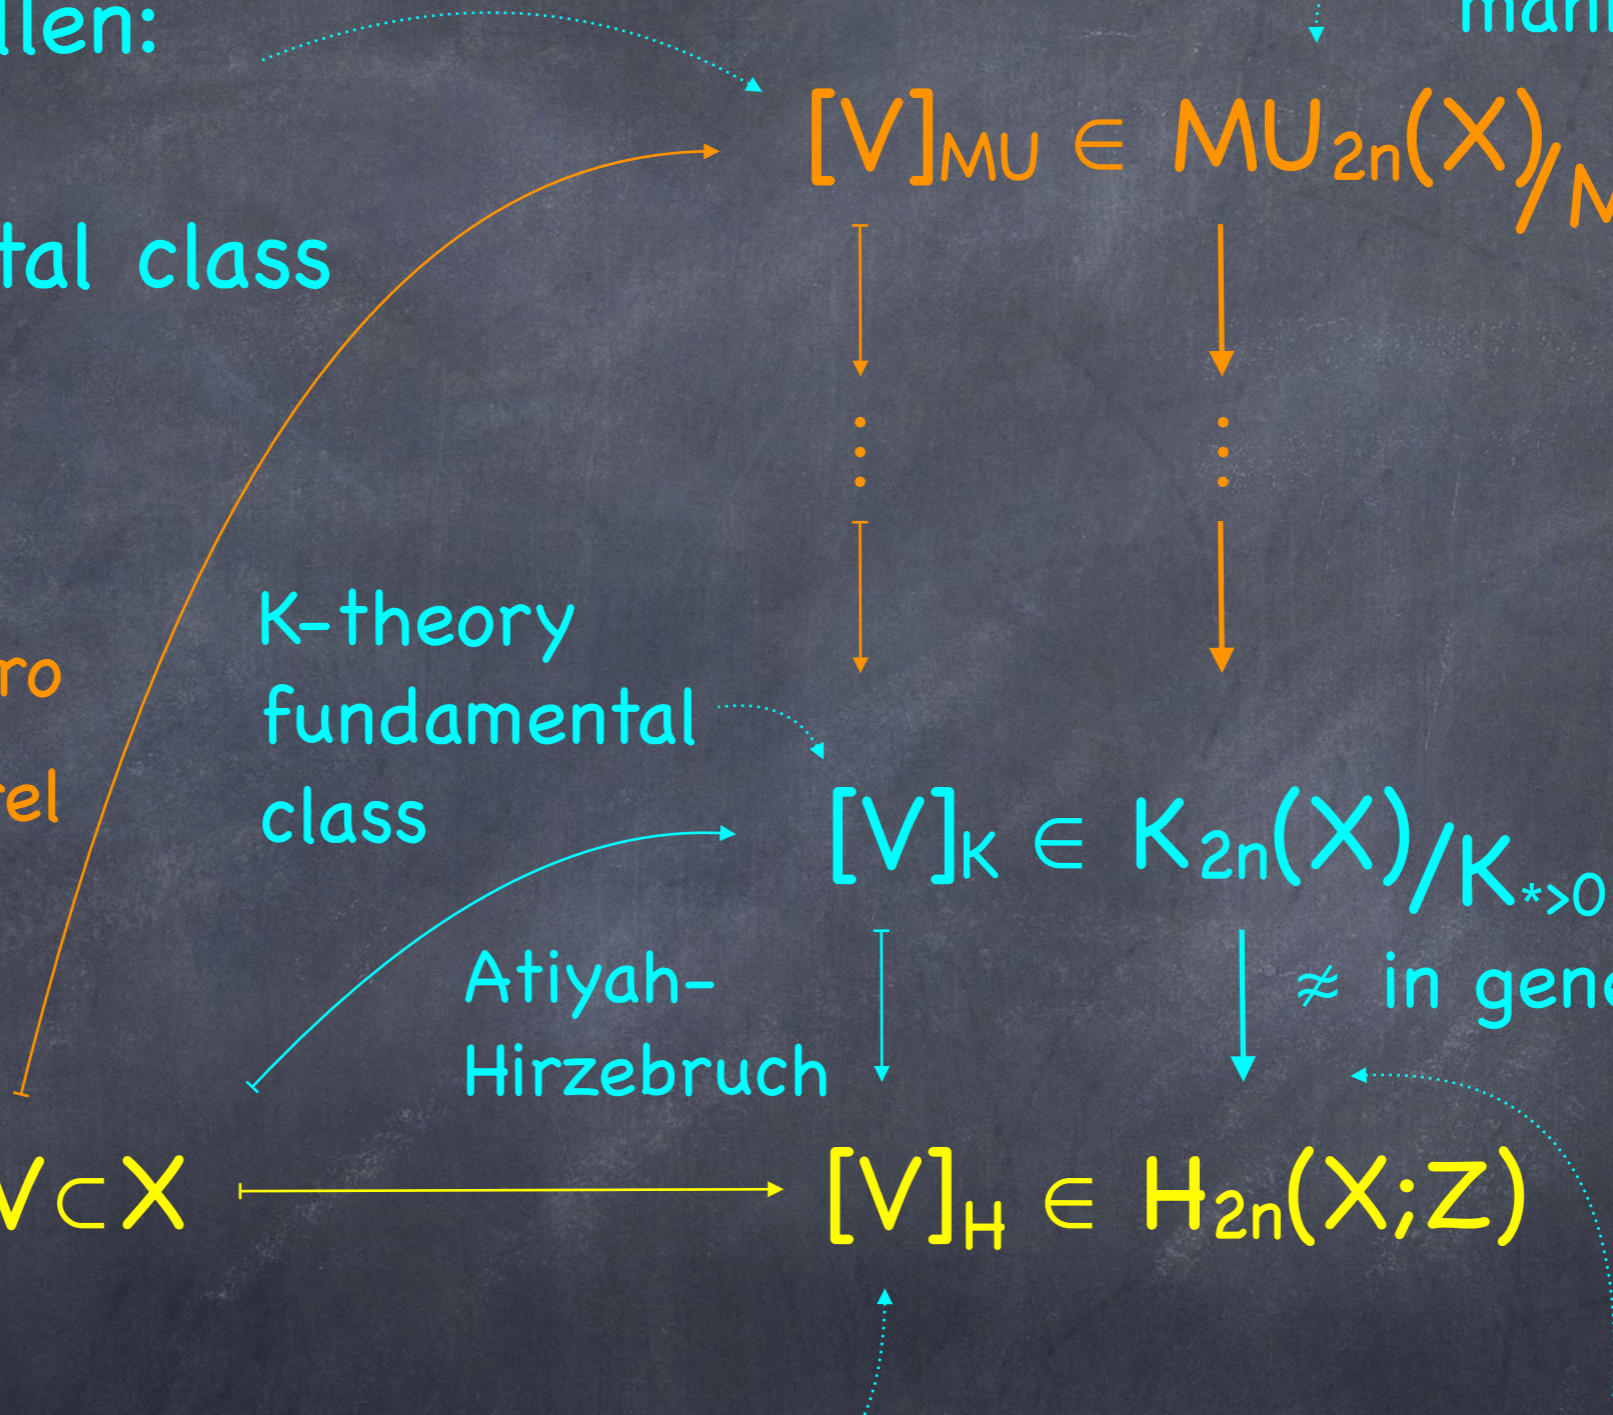 llen:
[V]MU ∈ MU2n(X)/M
tal class
K-theory
fundamental
class
ro
rel
[V]K ∈ K2n(X)/K*>0
Atiyah-
Hirzebruch
≉ in gene
V⊂X
[V]H ∈ H2n(X;Z)